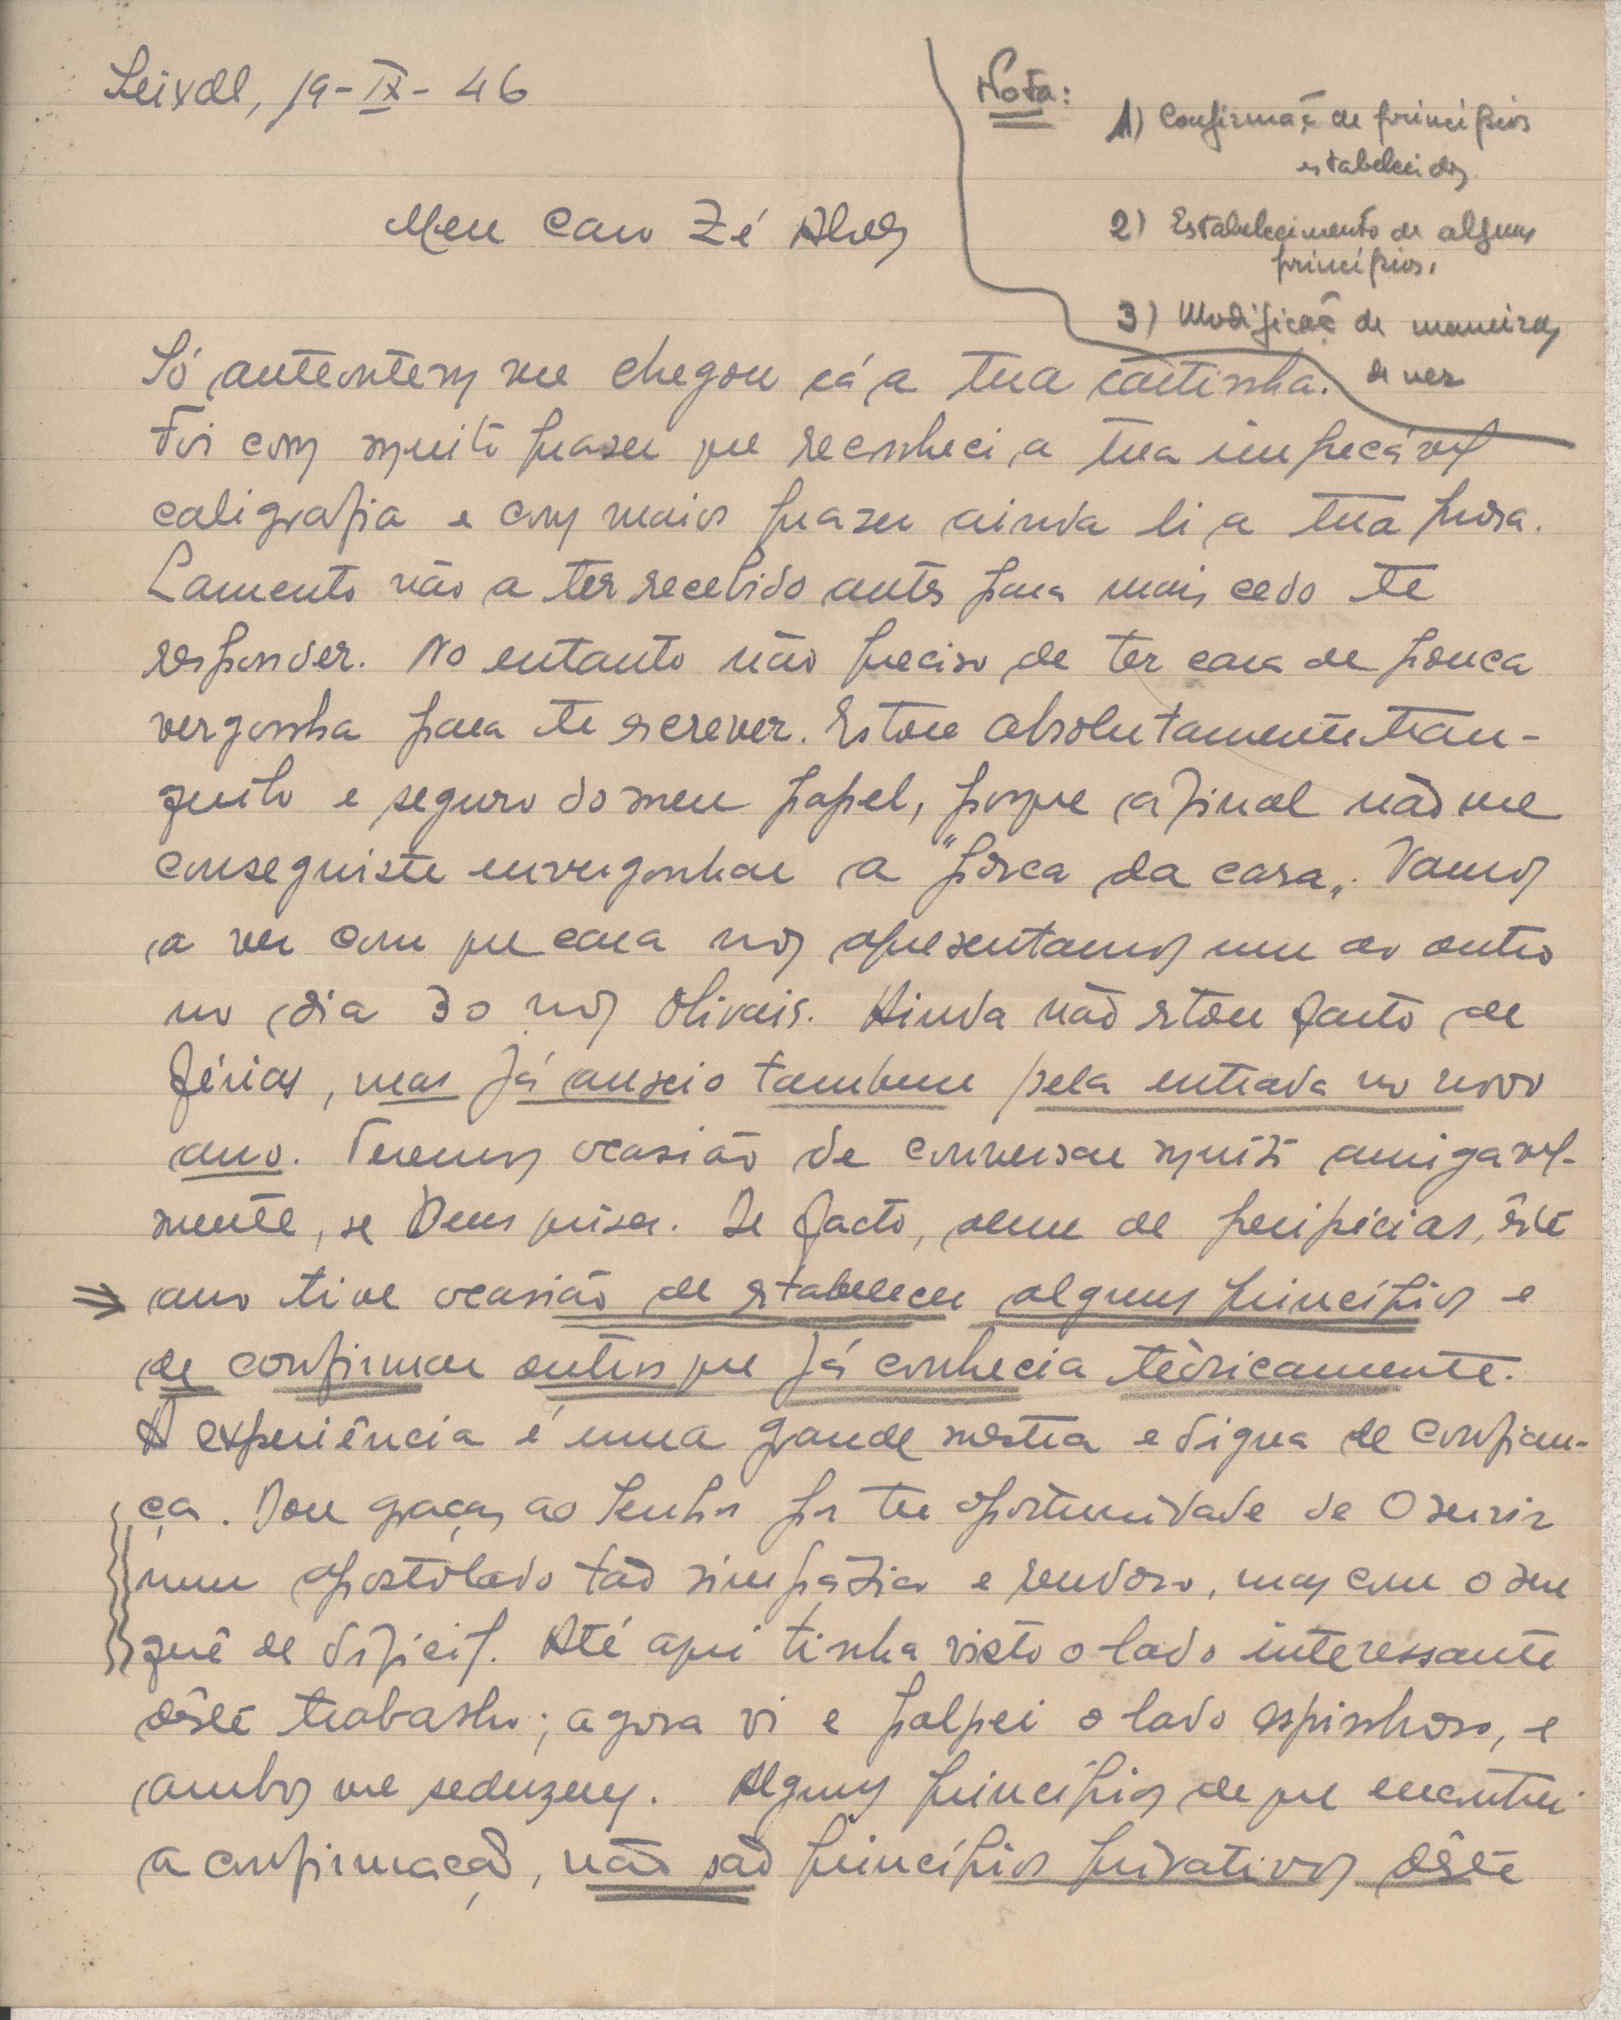 Seixal, 19-IX-46
Nota:
1) Confirmaç. de princípios
estabelecidos
2) Estabelecimento de alguns
princípios.
3) Modificaç. de maneiras
de ver
Meu Caro Zé Alves
Só anteontem me chegou cá a tua cartinha.
Foi com muito prazer que reconheci a tua impecável
caligrafia e com maior prazer ainda li a tua prosa.
Lamento não a ter recebido antes para mais cedo te
responder. No entanto não preciso de ter cara de pouca
vergonha para te escrever. Estou absolutamente tran-
quilo e seguro do meu papel, porque afinal não me
conseguiste envergonhar a "porca da cara„. Vamos
a ver com que cara nos apresentamos um ao outro
no dia 30 nos Olivais. Ainda não estou farto de
férias, mas já anseio tambem pela entrada no novo
ano. Teremos ocasião de conversar muito amigavel-
mente, se Deus quiser. De facto, além de peripécias, êste
ano tive ocasião de estabelecer alguns princípios e
de confirmar outros que já conhecia teòricamente.
A experiência é uma grande mestra e digna de confian-
ça. Dou graças ao Senhor por ter oportunidade de O servir
num apostolado tão simpático e rendoso, mas com o seu
quê de difícil. Até aqui tinha visto o lado interessante
dêste trabalho; agora vi e palpei o lado espinhoso, e
ambos me seduzem. Alguns princípios de que encontrei
a confirmação, não são princípios privativos dêste